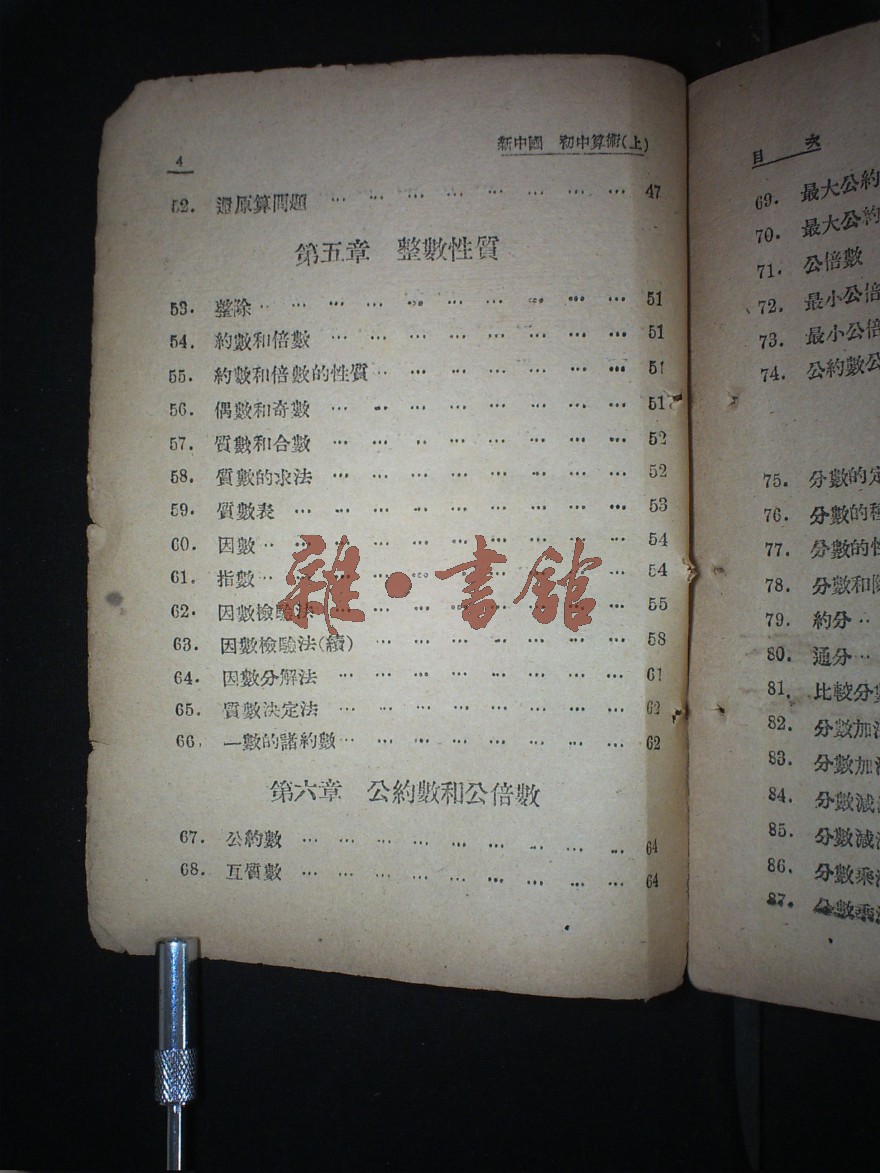 4
新中國 初中算術(上)
52. 還原算問題 … … … … … … … … 47
第五章 整數性質
53. 整除 … … … … … … … … … … 51
54. 約數和倍數 … … … … … … … … 51
55. 約數和倍數的性質 … … … … … … … 51
56. 偶數和奇數 … … … … … … … … 51
57. 質數和合數 … … … … … … … … 52
58. 質數的求法 … … … … … … … … 52
59. 質數表 … … … … … … … … … 53
60. 因數 … … … … … … … … … … 54
61. 指數 … … … … … … … … … … 54
62. 因數檢驗法 … … … … … … … … 55
63. 因數檢驗法(續) … … … … … … … 58
64. 因數分解法 … … … … … … … … 61
65. 質數決定法 … … … … … … … … 62
66. 一數的諸約數 … … … … … … … … 62
第六章 公約數和公倍數
67. 公約數 … … … … … … … … … 64
68. 互質數 … … … … … … … … … 64
雜·書館
目 次
69. 最大公約
70. 最大公約
71. 公倍數
72. 最小公倍
73. 最小公倍
74. 公約數公
75. 分數的定
76. 分數的種
77. 分數的性
78. 分數和除
79. 約分
80. 通分
81. 比較分數
82. 分數加法
83. 分數加法
84. 分數減法
85. 分數減法
86. 分數乘法
87. 分數乘法